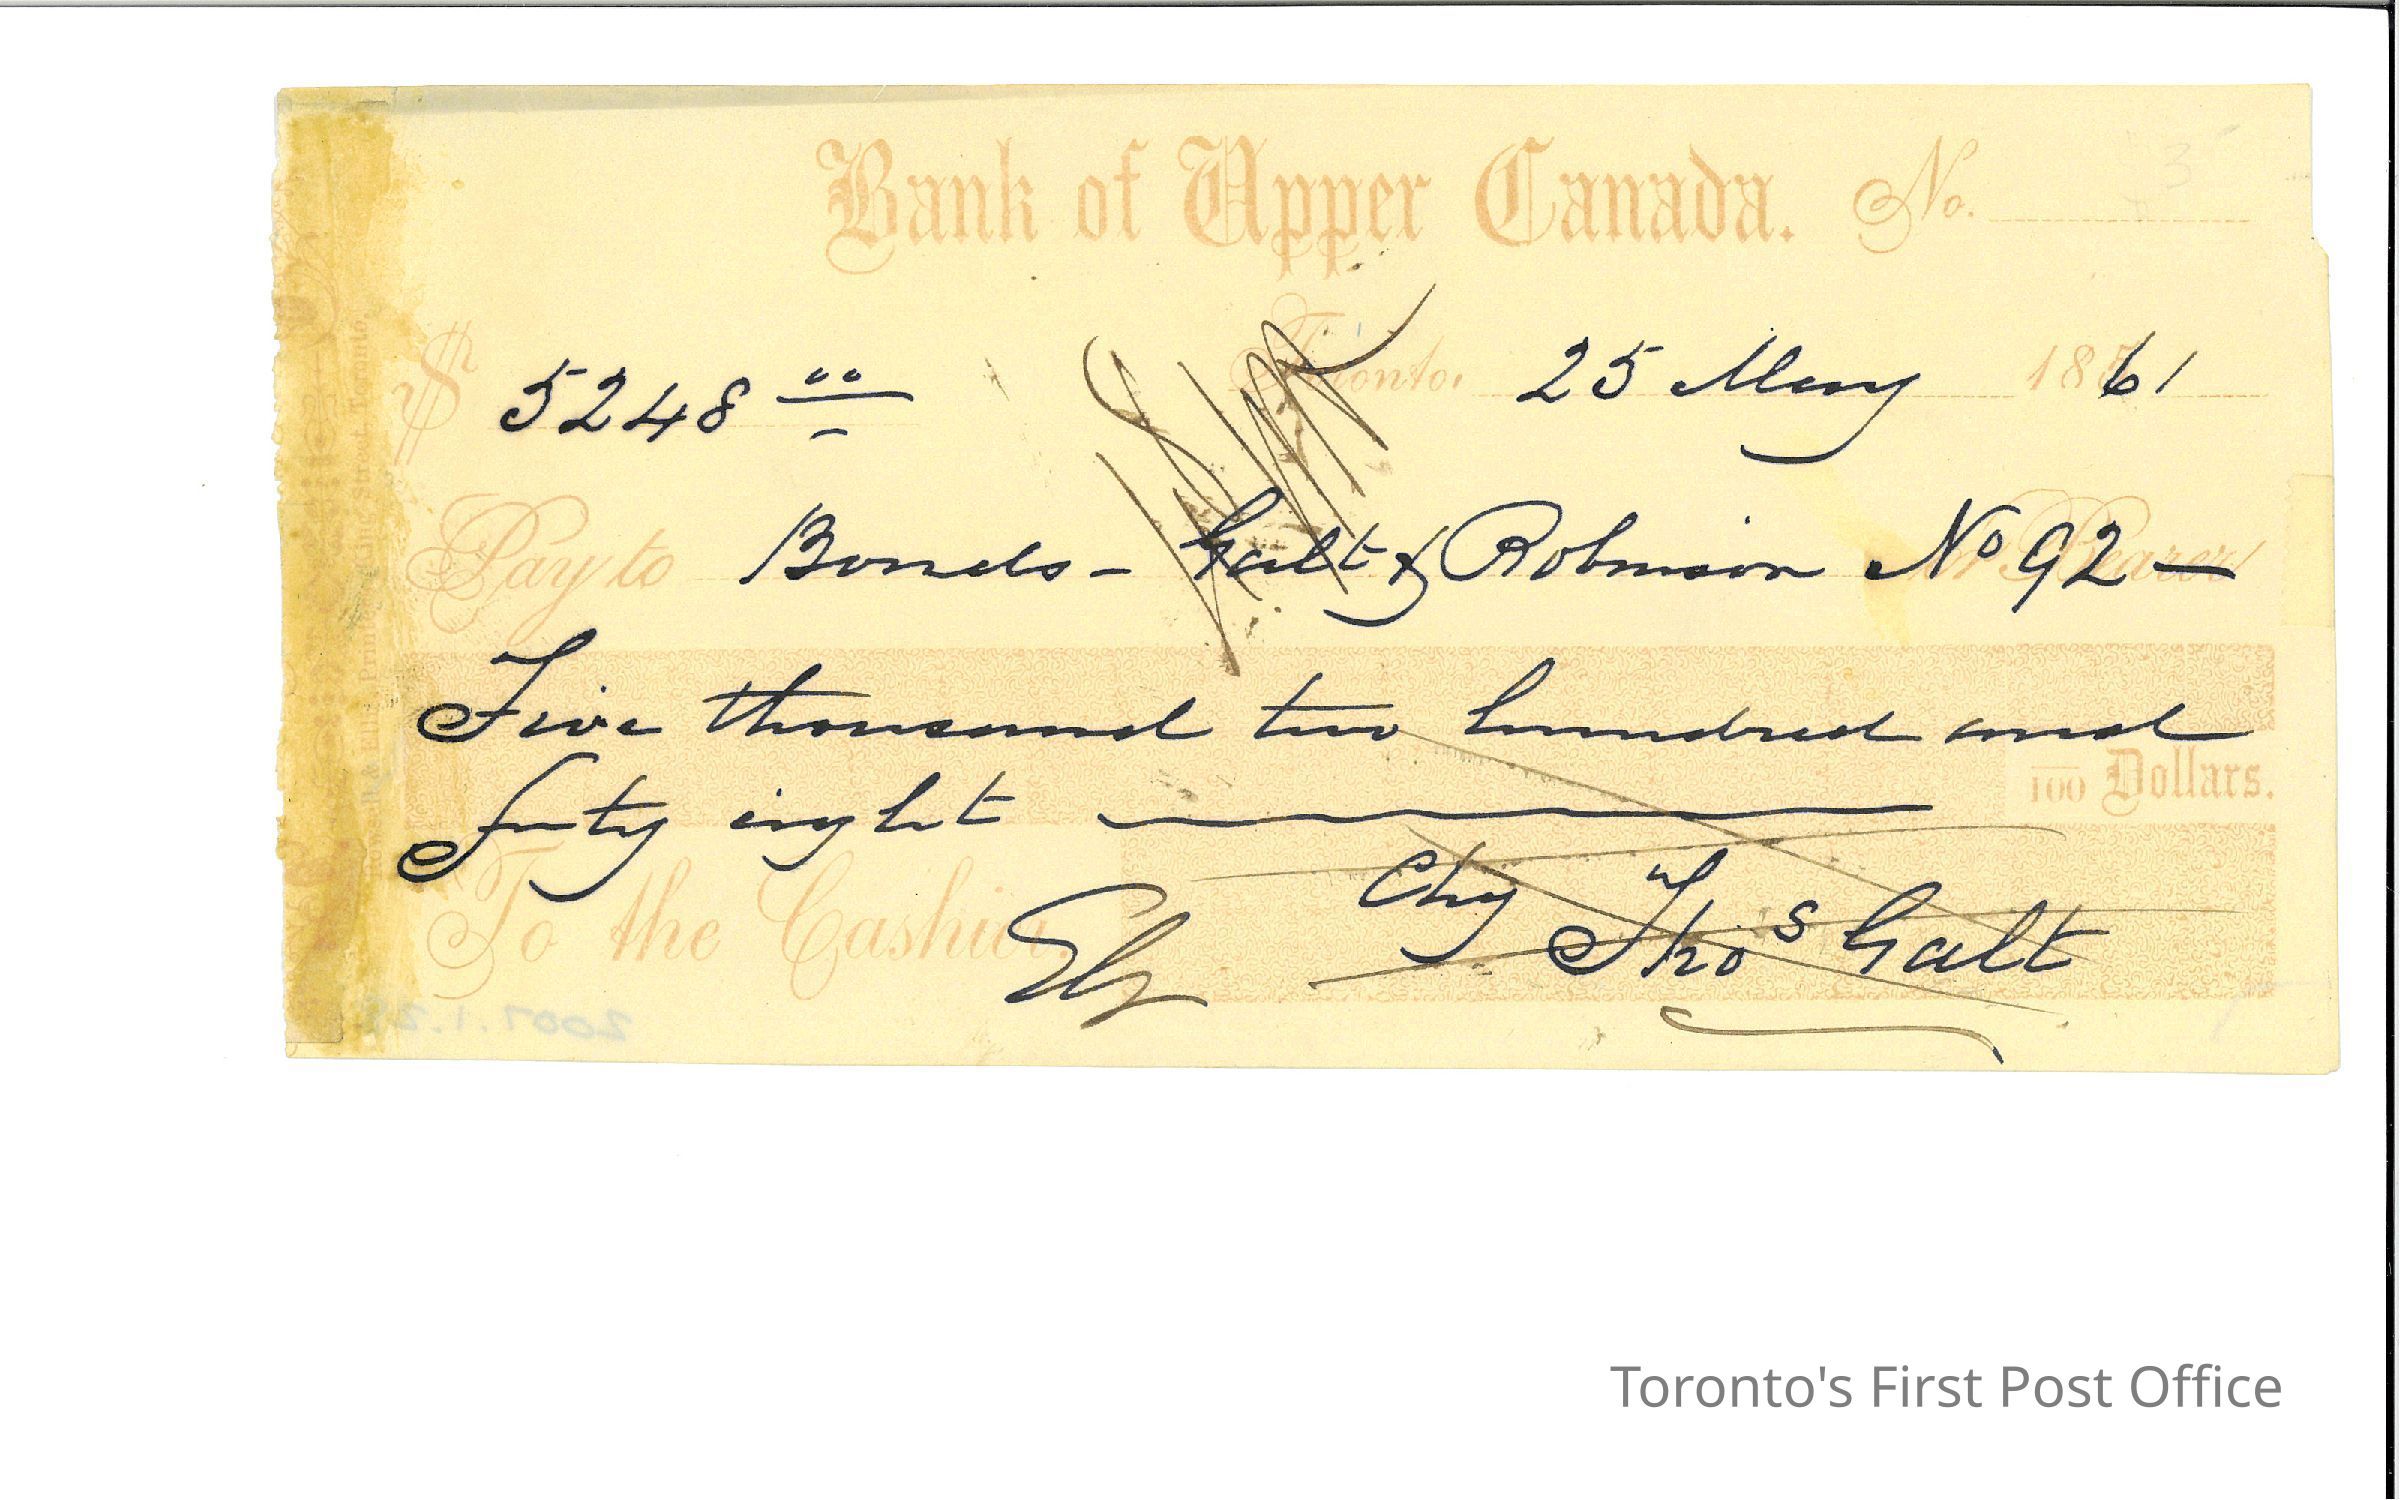 Bank of Upper Canada. No.
$ 5248 00 Toronto, 25 May 1861
Pay to Bonds - Galt & Robinson No 92 - or Bearer
Five thousand two hundred and
forty eight 100 Dollars.
To the Cashier. Thos Galt
2007.1.28
King Street Toronto.
Toronto's First Post Office